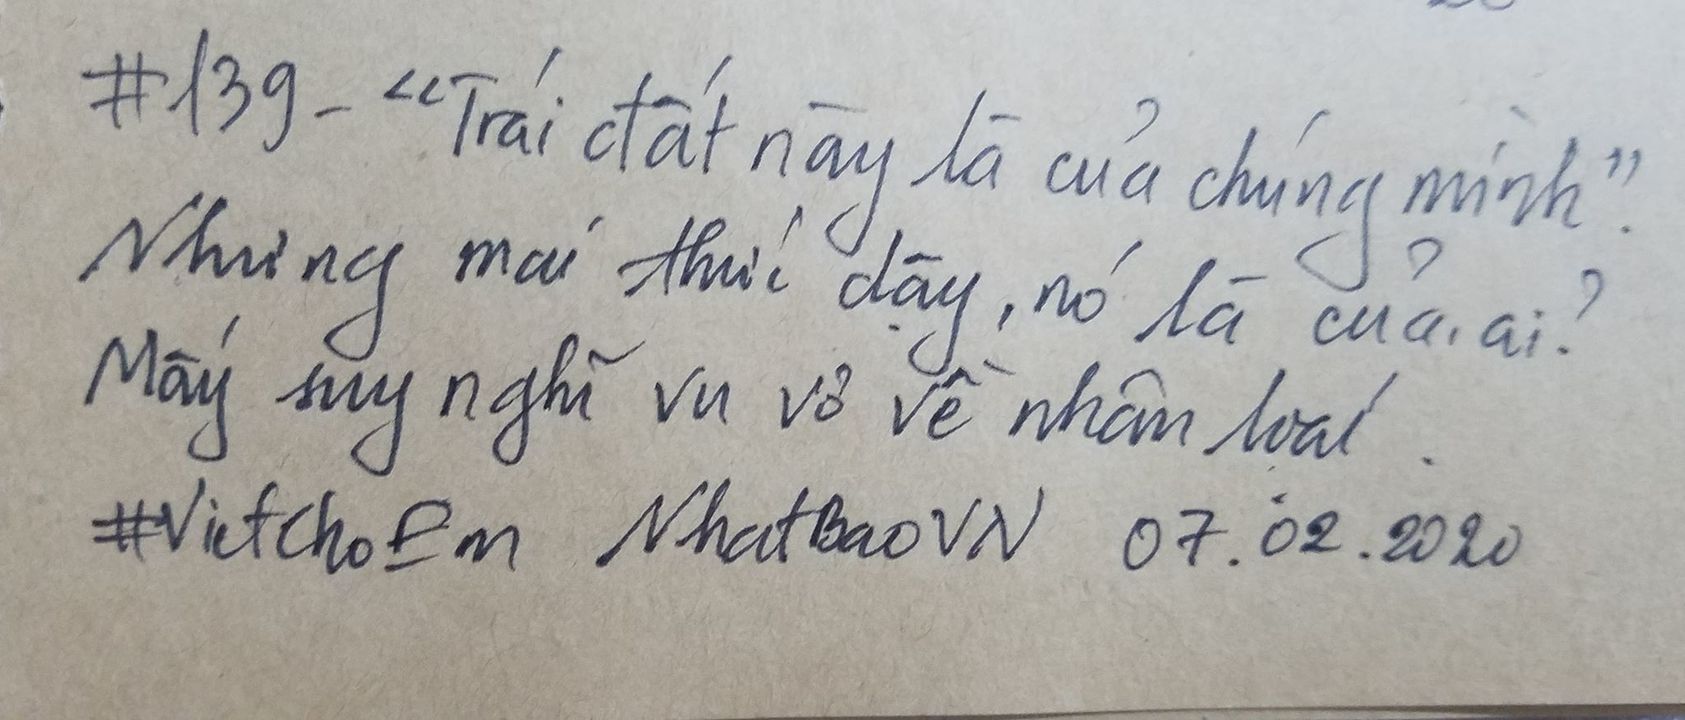 #139 - “Trái đất này là của chúng mình”.
Nhưng mai thức dậy, nó là của ai?
Mấy suy nghĩ vu vơ về nhân loại.
#VietchoEm NhatBaoVN 07.02.2020